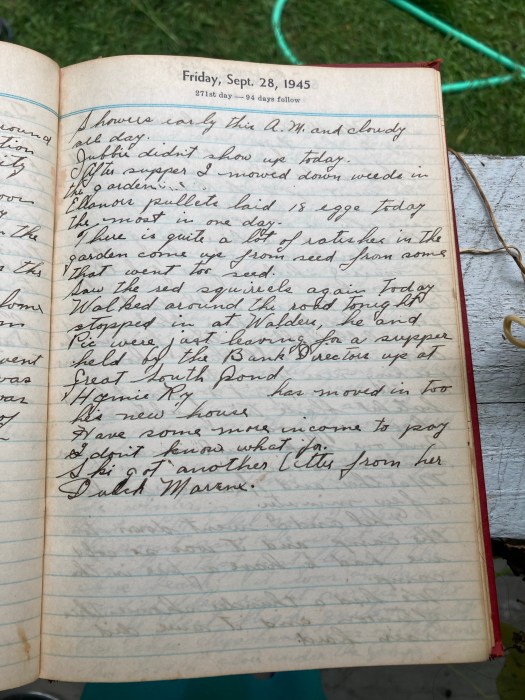 Friday, Sept. 28, 1945
271st day — 94 days follow
Showers early this A. M. and cloudy
all day.
didn't show up today.
After supper I moved down weeds in
the garden....
Ellanors pullets laid 18 eggs today
the most in one day.
There is quite a lot of raticher in the
garden come up from seed from some
that went too seed.
Saw the red squirrels again today
Walked around the road tonight
stopped in at Walders, he and
Pic were just leaving for a supper
held by the Bank Directors up at
Great South Pond
Ry has moved in too
his new house
Have some more income to pay
I don't know what for.
Ski got another letter from her
Dutch Marine.
ound
tion
ity
oor
the
this
home
vent
was
of